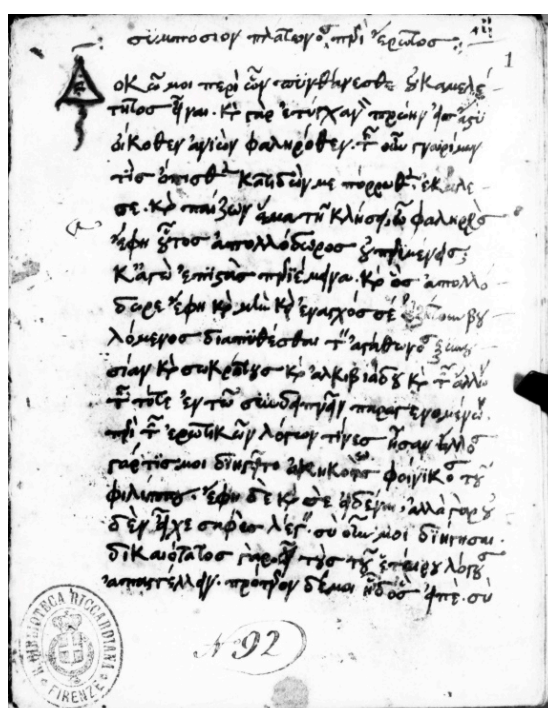 συμπόσιον πλάτωνος, περὶ ἔρωτος:
1
Δοκῶ μοι περὶ ὧν πυνθάνεσθε οὐκ ἀμελέ-
τητος εἶναι. καὶ γὰρ ἐτύγχανον πρώην εἰς ἄστυ
οἴκοθεν ἀνιὼν φαληρόθεν. τῶν οὖν γνωρίμων
τὶς ὄπισθεν κατιδών με πόρρωθεν, ἐκάλε-
σε. καὶ παίζων ἅμα τῇ κλήσει, ὦ φαληρεὺς
ἔφη οὗτος ἀπολλόδωρος οὐ περιμενεῖς;
κἀγὼ ἐπιστὰς περιέμεινα. καὶ ὃς ἀπολλό-
δωρε ἔφη καὶ μὴν καὶ ἔναγχός σε ἐζήτουν βου-
λόμενος διαπυθέσθαι τὴν ἀγάθωνος ξυνου-
σίαν καὶ σωκράτους καὶ ἀλκιβιάδου καὶ τῶν ἄλλων
τῶν τότε ἐν τῷ συνδείπνῳ παραγενομένων.
περὶ τῶν ἐρωτικῶν λόγων τίνες ἦσαν. ἄλλος
γάρ τίς μοι διηγεῖτο ἀκηκοὼς φοίνικος τοῦ
φιλίππου. ἔφη δὲ καὶ σὲ εἰδέναι. ἀλλὰ γὰρ οὐ
δὲν εἶχε σαφὲς λέγειν. σὺ οὖν μοι διήγησαι.
δικαιότατος γὰρ εἶ τοὺς τοῦ ἑταίρου λόγους
ἀπαγγέλλειν. πρότερον δέ μοι ἦ δ' ὃς εἰπέ. σὺ
N 92
R. BIBLIOTECA RICCARDIANA
FIRENZE